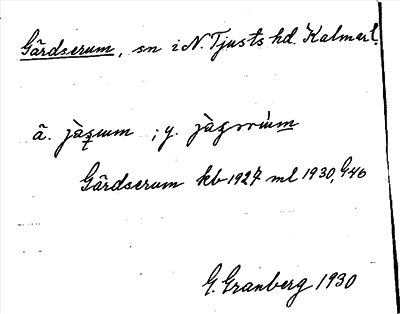 Gårdserum, sn i N. Tjusts hd. Kalmarl.
ä. ; y.
Gårdserum kb 1927 ml 1930, 946
G. Granberg 1930